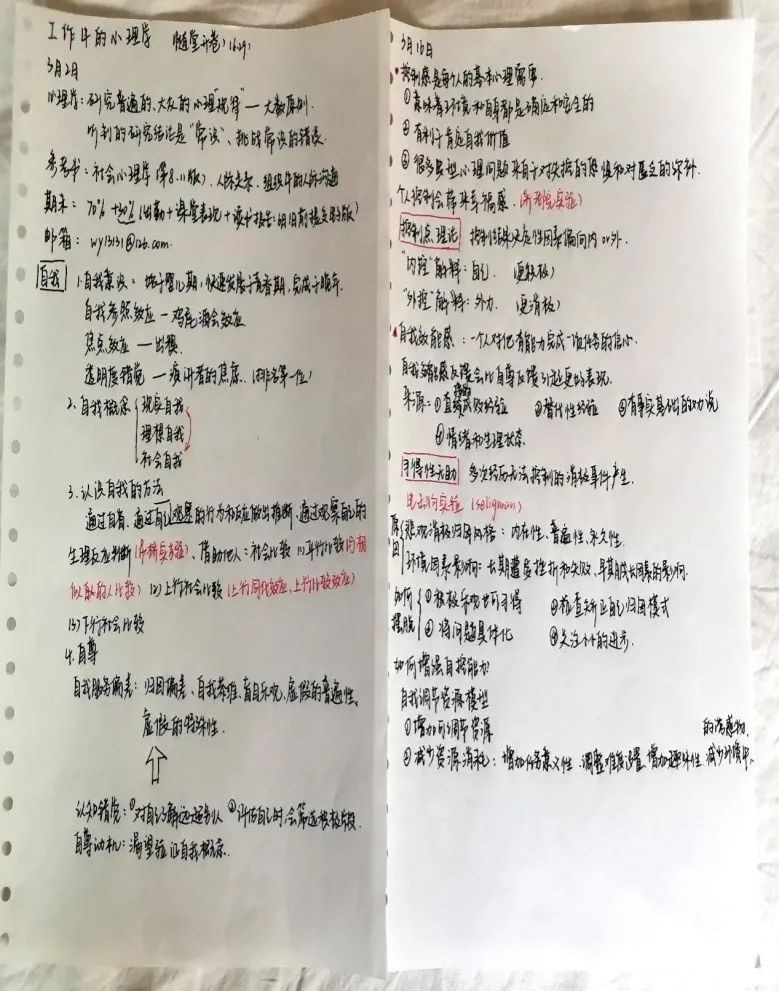 工作中的心理学 随堂开卷(16周)
3月2日
心理学：研究普遍的、大众的心理"规律"—大数原则.
听到的研究结论是"常识"、挑战常识的错误.
参考书：社会心理学(第8.11版). 人际关系. 组织中的人际沟通
期末： 70% +30%(出勤+课堂表现+
邮箱： wy13131@126.com.
自我
1.自我意识：始于婴儿期，快速发展于青春期，完成于
自我参照效应—鸡尾酒会效应
焦点效应 —出糗
透明度错觉 —演讲者的焦虑. (排名第一位)
2.自我概念
现实自我
理想自我
社会自我
3.认识自我的方法
通过自省、通过自己观察的行为和反应做出推断、通过观察自己的
生理反应判断(吊桥实验)、借助他人：社会比较 (1)平行比较(与相
似的人比较) (2)上行社会比较(上行同化效应、上行比较效应)
(3)下行社会比较
4.自尊
自我服务偏差：归因偏差、自我英雄、盲目乐观、虚假的普遍性、
虚假的特殊性.
认知错觉：①对自己了解远远超别人 ②评估自己时会筛选积极片段.
自尊动机：渴望验证自我概念.
3月16日
控制感是每个人的基本心理需要.
①意味着环境和自身都是确定和安全的
②有利于肯定自我价值
③很多典型心理问题来自于对失控的恐惧和对匮乏的弥补.
个人控制会带来幸福感. (养老院实验)
控制点理论 控制结果决定性因素偏向内or外.
"内控"解释：自己. (更积极)
"外控"解释：外力. (更消极)
自我效能感：一个人对他有能力完成一项任务的信心.
自我效能感反馈会比自尊反馈引起更好的表现.
来源：①直接成败经验 ②替代性经验 ③有事实基础的劝说
④情绪和生理状态.
习得性无助 多次经历无法控制的消极事件产生.
电击狗实验 (Seligman)
原因
悲观消极归因风格：内在性、普遍性、永久性.
环境因素影响：长期遭多挫折和失败，早期成长因素的影响.
如何摆脱
①积极乐观也可习得 ③检查矫正自己归因模式
②将问题具体化 ④关注小小的进步.
如何增强自控能力?
自我调节资源模型
①增加可调节资源 的诱惑物.
②减少资源消耗：增加任务意义性、调整难度设置、增加趣味性、减少环境中